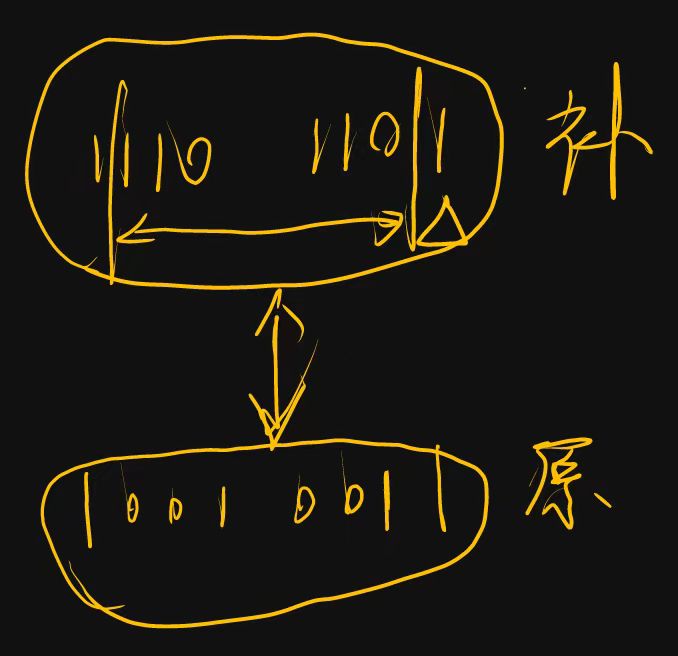 1110 1101 补
1001 0011 原